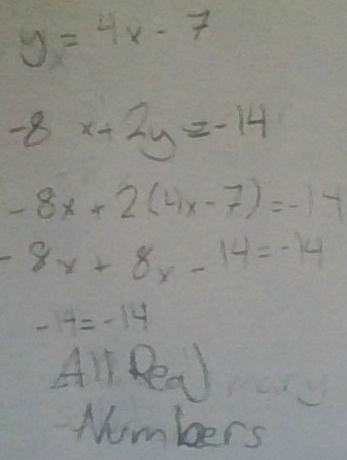 y = 4x - 7
-8x + 2y = -14
-8x + 2(4x-7) = -14
-8x + 8x - 14 = -14
-14 = -14
All Real
Numbers